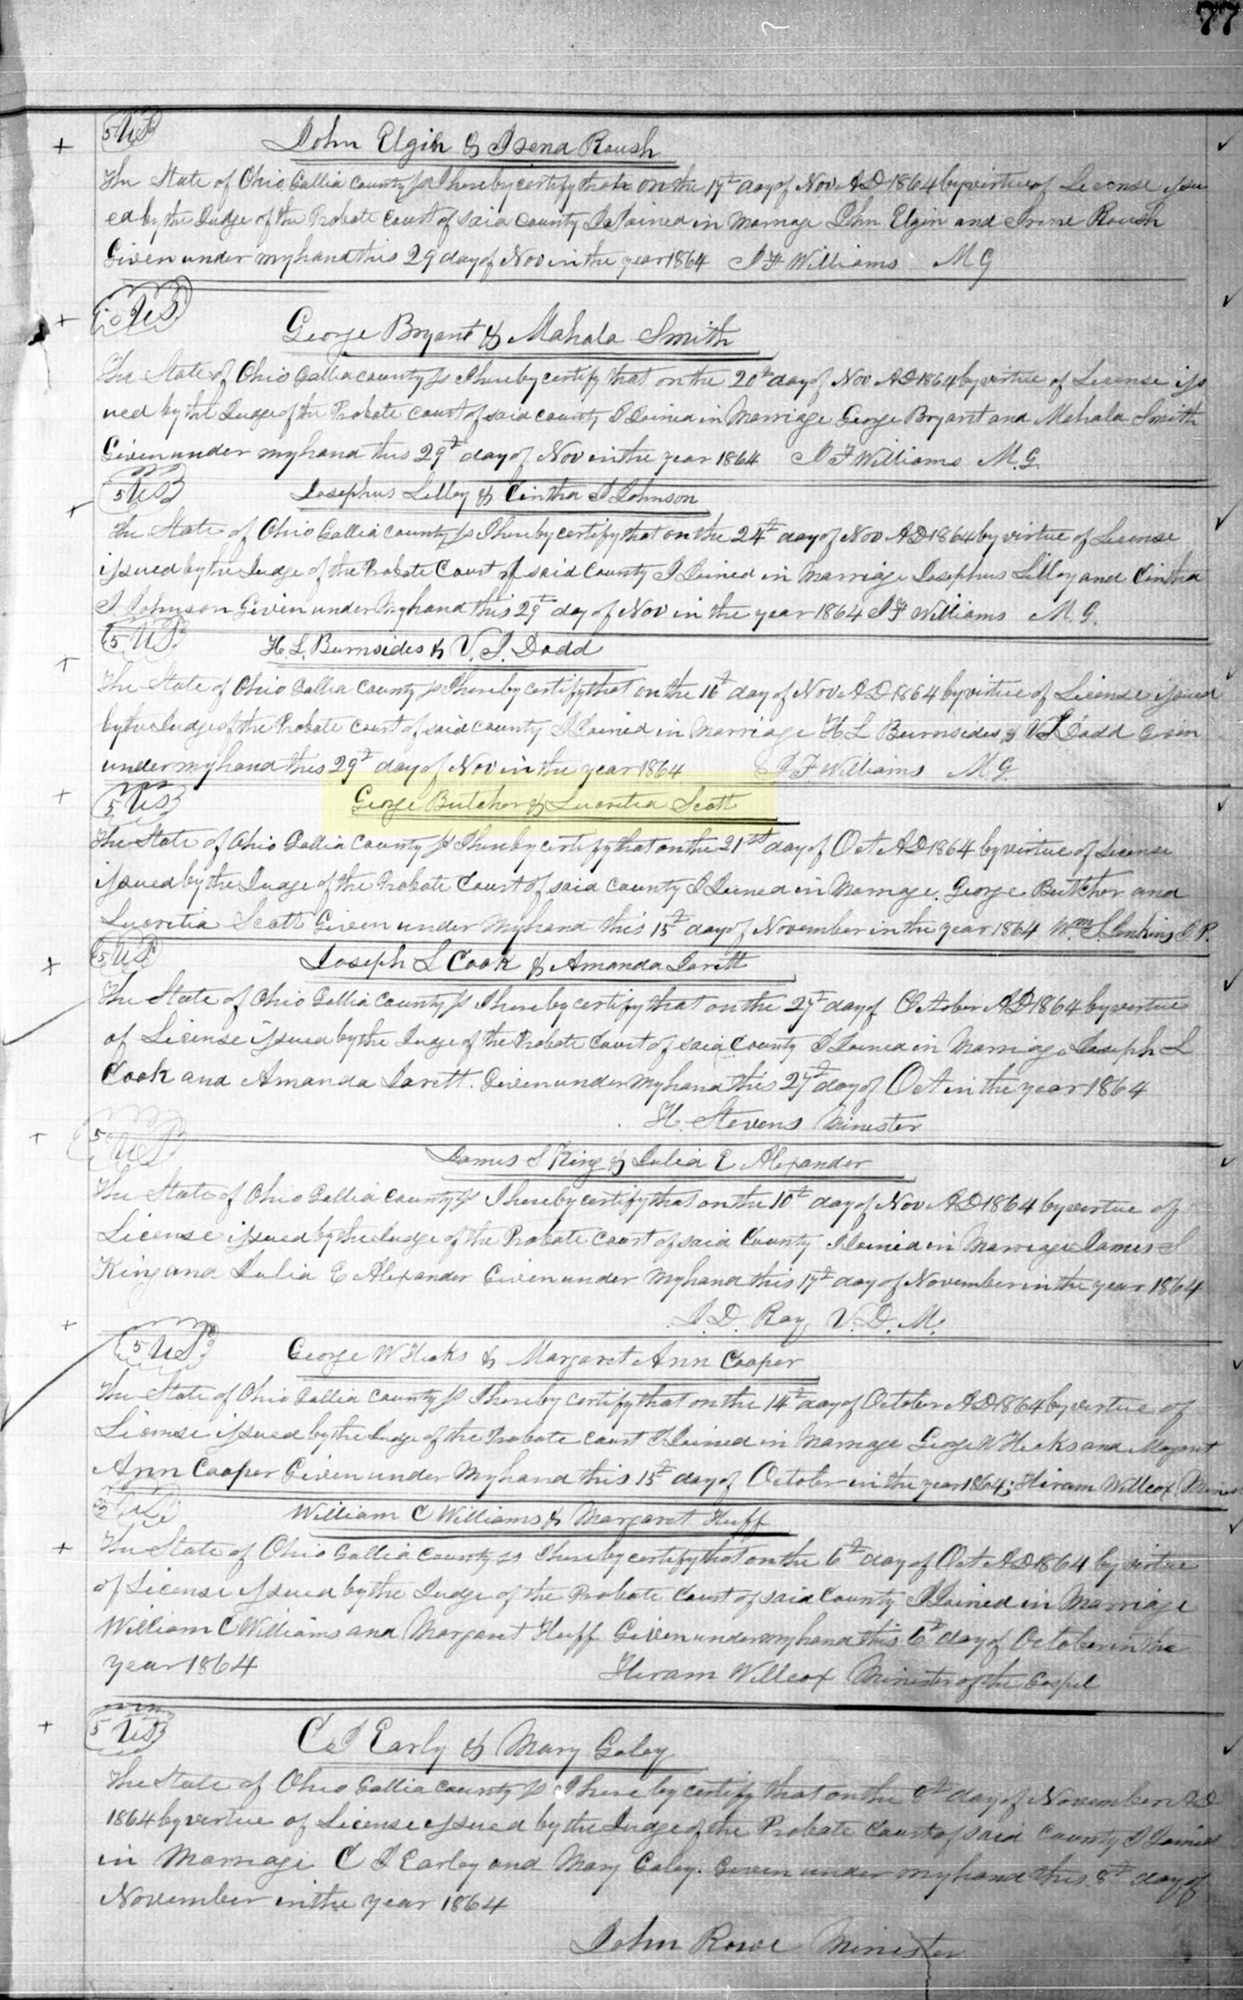 77
5 US
John Elgin & Isena Roush
The State of Ohio Gallia County ss I hereby certify that on the 17th day of Nov AD 1864 by virtue of License issu
ed by the Judge of the Probate Court of said County I Joined in Marriage John Elgin and Irene Roush
Given under my hand this 29 day of Nov in the year 1864 I F Williams M G
US
George Bryant & Mahala Smith
The State of Ohio Gallia County ss I hereby certify that on the 20th day of Nov AD 1864 by virtue of License iss
ued by the Judge of the Probate Court of said County I Joined in Marriage George Bryant and Mahala Smith
Given under my hand this 29th day of Nov in the year 1864 I F Williams M.G.
5 US
Josephus Lilley & Cintha J Johnson
The State of Ohio Gallia County ss I hereby certify that on the 24th day of Nov AD 1864 by virtue of License
issued by the Judge of the Probate Court of said County I Joined in Marriage Josephus Lilley and Cintha
J Johnson Given under my hand this 29th day of Nov in the year 1864 I F Williams M.G.
5 US
H. L. Burnsides & V. J. Dodd
The State of Ohio Gallia County ss I hereby certify that on the 16th day of Nov AD 1864 by virtue of License issued
by the Judge of the Probate Court of said County I Joined in Marriage H L Burnsides & V J Dodd Given
under my hand this 29th day of Nov in the year 1864 I F Williams M.G.
5 US
George Butcher & Lucretia Scott
The State of Ohio Gallia County ss I hereby certify that on the 21st day of Oct AD 1864 by virtue of License
issued by the Judge of the Probate Court of said County I Joined in Marriage. George Butcher and
Lucretia Scott Given under my hand this 15th day of November in the year 1864 Wm S Jenkins J P.
5 US
Joseph L Cook & Amanda Jarett
The State of Ohio Gallia County ss I hereby certify that on the 27th day of October AD 1864 by virtue
of License issued by the Juge of the Probate Court of said County I Joined in Marriage Joseph L
Cook and Amanda Jarett. Given under my hand this 27th day of Oct in the year 1864
H. Stevens Minister
5 US
James S King & Julia E Alexander
The State of Ohio Gallia County ss I hereby certify that on the 10th day of Nov AD 1864 by virtue of
License issued by the Judge of the Probate Court of said County I Joined in Marriage James S
King and Julia E Alexander Given under my hand this 17th day of November in the year 1864
I. D. Ray V. D. M.
5 US
George W Hicks & Margaret Ann Cooper
The State of Ohio Gallia County ss I hereby certify that on the 14th day of October AD 1864 by virtue of
License issued by the Judge of the Probate Court I Joined in Marriage George W Hicks and Margaret
Ann Cooper Given under my hand this 15th day of October in the year 1864; Hiram Willcox
William C Williams & Margaret Huff
The State of Ohio Gallia County ss I hereby certify that on the 6th day of Oct AD 1864 by virtue
of License issued by the Judge of the Probate Court of said County I Joined in Marriage
William C Williams and Margaret Huff Given under my hand this 6th day of October in the
year 1864 Hiram Willcox Minister of the Gospel
5 US
C J Early & Mary Galey
The State of Ohio Gallia County ss I hereby certify that on the 8th day of November AD
1864 by virtue of License issued by the Judge of the Probate Court of said County I Joined
in Marriage C J Earley and Mary Galey. Given under my hand this 8th day of
November in the year 1864
John Rowe Minister